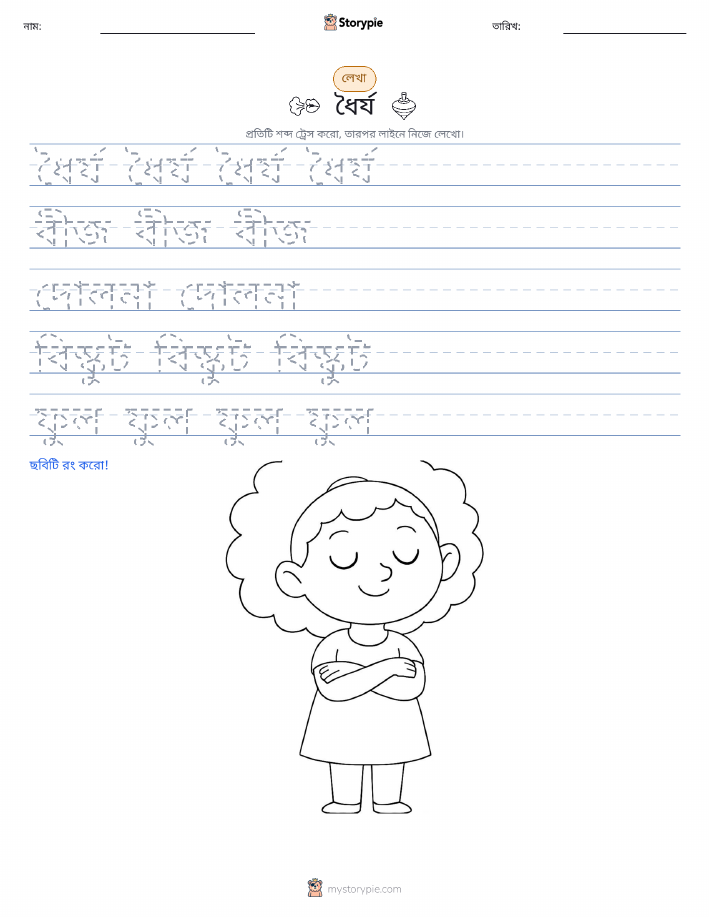 নাম: Storypie তারিখ:
লেখা
ধৈর্য
প্রতিটি শব্দ ট্রেস করো, তারপর লাইনে নিজে লেখো।
ধৈর্য ধৈর্য ধৈর্য ধৈর্য
বীজ বীজ বীজ
দোলনা দোলনা
বিস্কুট বিস্কুট বিস্কুট
ফুল ফুল ফুল ফুল
ছবিটি রং করো!
mystorypie.com